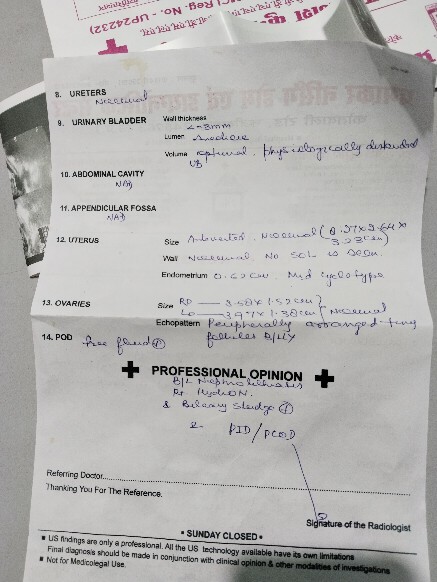 MCI Reg. No. UP24232)
8. URETERS
Normal
9. URINARY BLADDER Wall thickness
<-3mm
Lumen Anechoic
Volume optimal, physiologically distended
UB
10. ABDOMINAL CAVITY
NAD
11. APPENDICULAR FOSSA
NAD
12. UTERUS Size Anteverted, Normal (8.27x3.64x
3.23cm)
Wall Normal. No SOL is seen.
Endometrium 0.62cm, Mid cyclotype
13. OVARIES Size RO — 3.58x1.52cm
LO — 3.97x1.38cm Normal
Echopattern Peripherally arranged tiny
follicles B/L
14. POD free fluid (+)
PROFESSIONAL OPINION
B/L Nephrolithiasis
Rt HydroN.
& Biliary Sludge (+)
& PID/PCOD
Referring Doctor
Thanking You For The Reference.
Signature of the Radiologist
• SUNDAY CLOSED •
■ US findings are only a professional. All the US technology available have its own limitations
Final diagnosis should be made in conjunction with clinical opinion & other modalities of investigations
■ Not for Medicolegal Use.